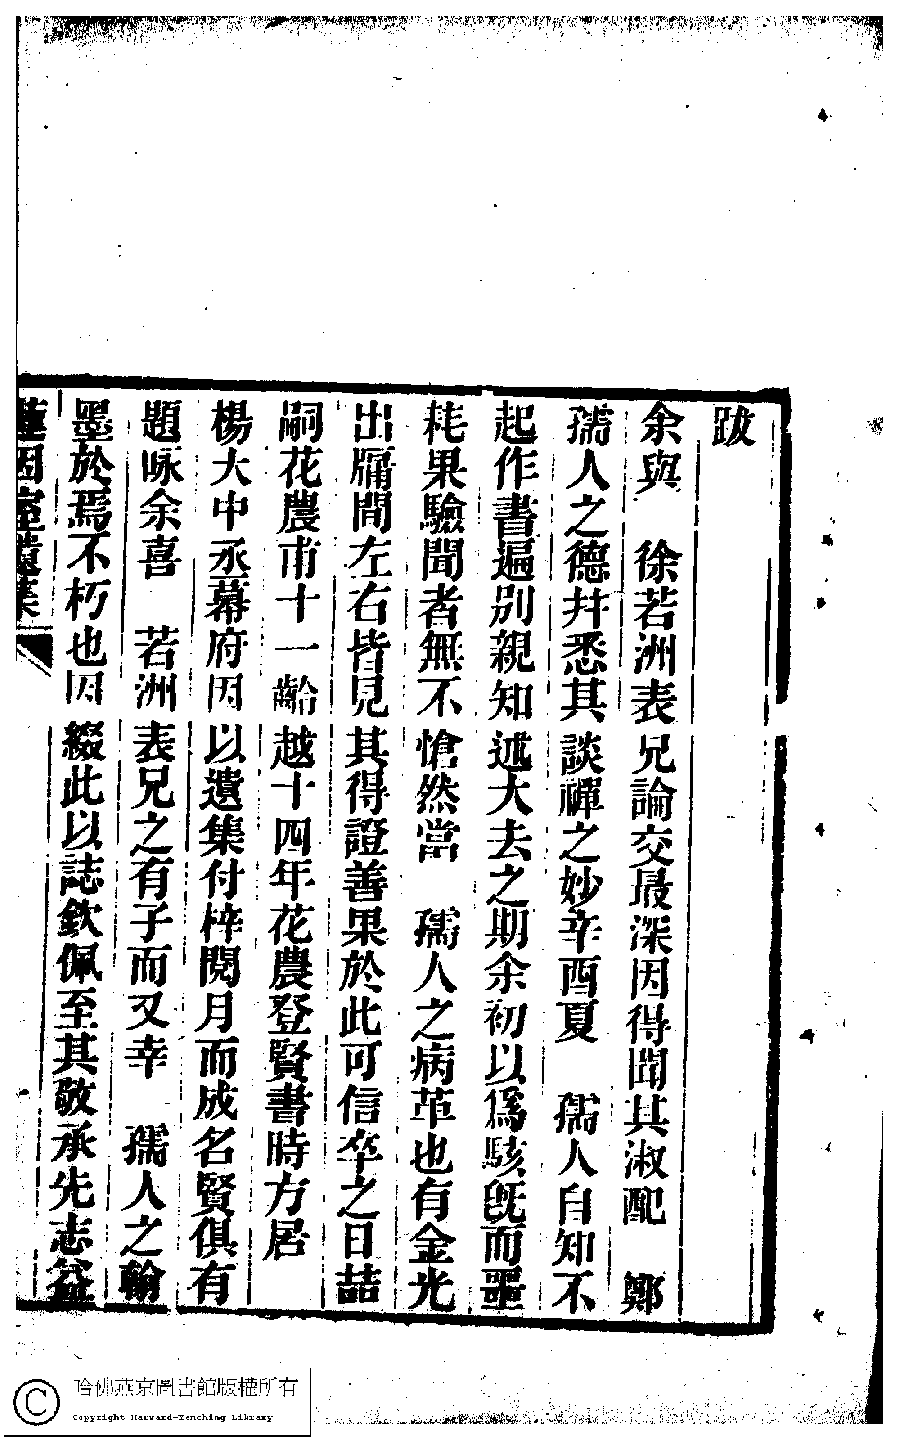 跋
余與　徐若洲表兄論交最深因得聞其淑配　鄭
孺人之德并悉其談禪之妙辛酉夏　孺人自知不
起作書遍別親知述大去之期余初以爲駭旣而噩
耗果驗聞者無不愴然當　孺人之病革也有金光
出牖間左右皆見其得證善果於此可信卒之日喆
嗣花農甫十一齡越十四年花農登賢書時方居
楊大中丞幕府因以遺集付梓閱月而成名賢俱有
題咏余喜　若洲表兄之有子而又幸　孺人之翰
墨於焉不朽也因綴此以誌欽佩至其敬承先志益
蓮因室遺集
哈佛燕京圖書館版權所有
Copyright Harvard-Yenching Library